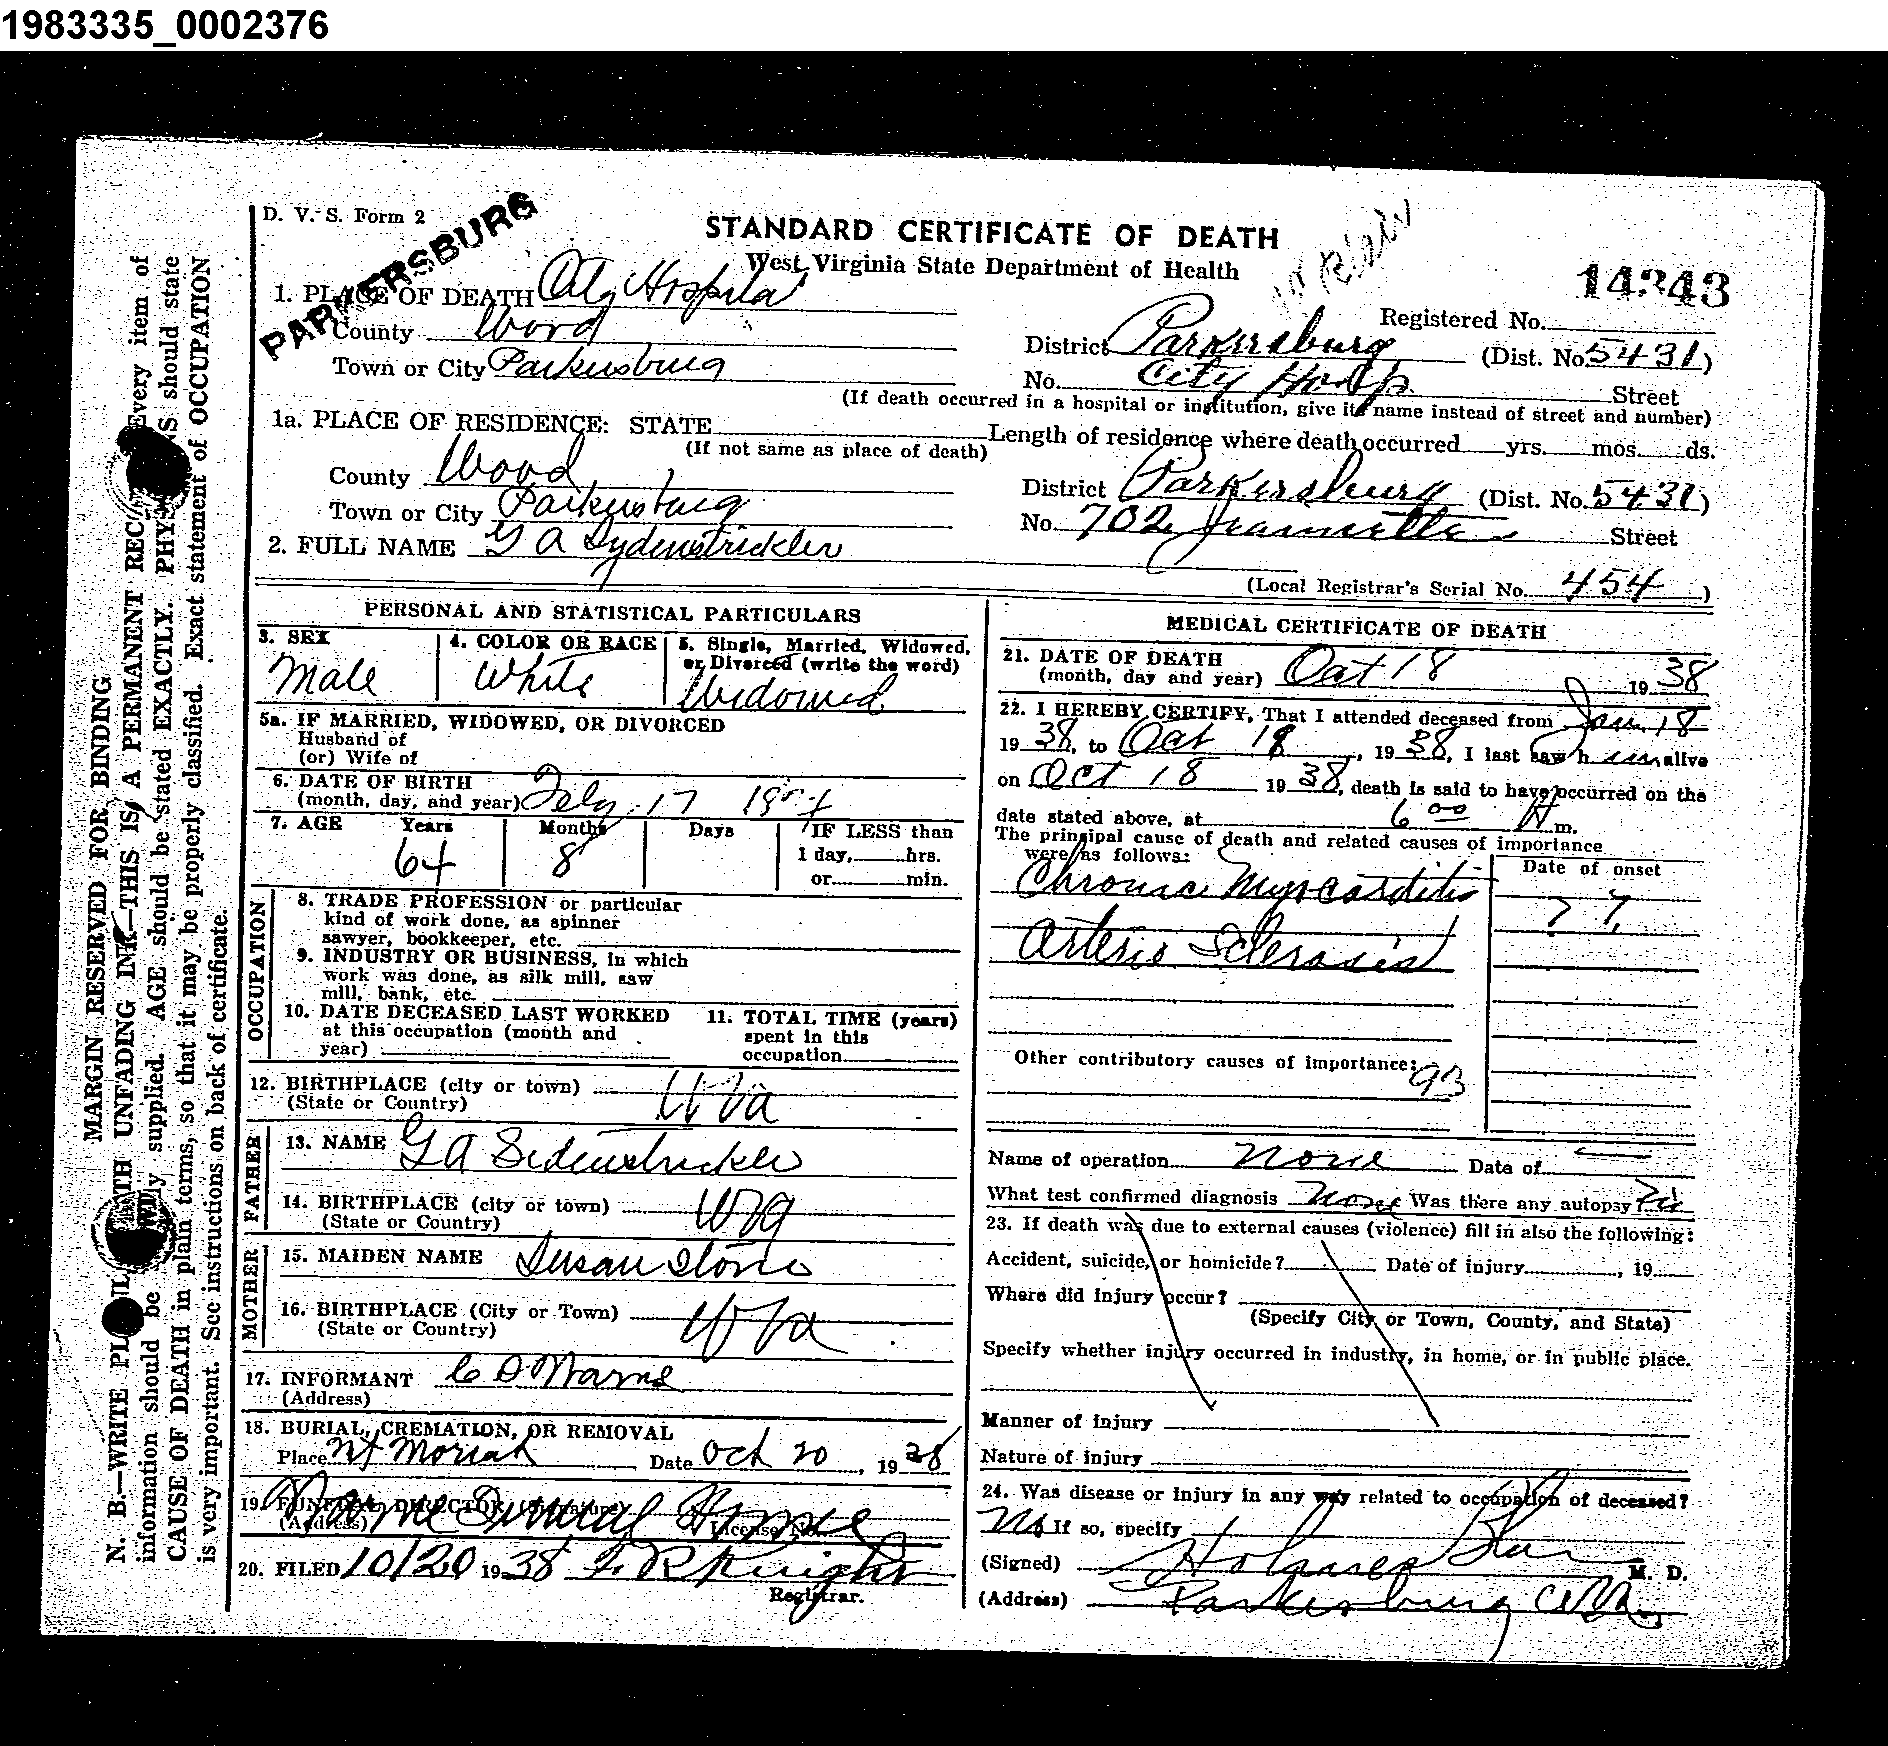 1983335_0002376
D. V. S. Form 2
PARKERSBURG
STANDARD CERTIFICATE OF DEATH
West Virginia State Department of Health
14343
1. PLACE OF DEATH City Hospital
Registered No.
County Wood
District Parkersburg (Dist. No. 5431)
Town or City Parkersburg
No. City Hosp. Street
(If death occurred in a hospital or institution, give its name instead of street and number)
1a. PLACE OF RESIDENCE: STATE
(If not same as place of death)
Length of residence where death occurred yrs. mos. ds.
County Wood
District Parkersburg (Dist. No. 5431)
Town or City Parkersburg
No. 702 Jeannette Street
2. FULL NAME G A Sydenstrickler
(Local Registrar's Serial No. 454)
PERSONAL AND STATISTICAL PARTICULARS
3. SEX
Male
4. COLOR OR RACE
White
5. Single, Married, Widowed,
or Divorced (write the word)
Widowed
5a. IF MARRIED, WIDOWED, OR DIVORCED
Husband of
(or) Wife of
6. DATE OF BIRTH
(month, day, and year) Feby. 17
7. AGE Years Months Days IF LESS than
64 8 1 day, hrs.
or min.
OCCUPATION
8. TRADE PROFESSION or particular
kind of work done, as spinner
sawyer, bookkeeper, etc.
9. INDUSTRY OR BUSINESS, in which
work was done, as silk mill, saw
mill, bank, etc.
10. DATE DECEASED LAST WORKED
at this occupation (month and
year)
11. TOTAL TIME (years)
spent in this
occupation
12. BIRTHPLACE (city or town) W Va
(State or Country)
FATHER
13. NAME G A Sidenstrickler
14. BIRTHPLACE (city or town) W Va
(State or Country)
MOTHER
15. MAIDEN NAME Susan Stone
16. BIRTHPLACE (City or Town) W Va
(State or Country)
17. INFORMANT C D Warne
(Address)
18. BURIAL, CREMATION, OR REMOVAL
Place Mt Moriah Date Oct 20, 1938
19. FUNERAL DIRECTOR (Signature) Warne Funeral Home
(Address) License No.
20. FILED 10/20 1938 R Knight
Registrar.
MEDICAL CERTIFICATE OF DEATH
21. DATE OF DEATH
(month, day and year) Oct 18 1938
22. I HEREBY CERTIFY, That I attended deceased from Jan. 18
1938, to Oct 18, 1938, I last saw h im alive
on Oct 18 1938, death is said to have occurred on the
date stated above, at 6 00 A m.
The principal cause of death and related causes of importance
were as follows:
Date of onset
Chronic Myocarditis
? ?
Arterio Sclerosis
Other contributory causes of importance: 93
Name of operation None Date of
What test confirmed diagnosis None Was there any autopsy? No
23. If death was due to external causes (violence) fill in also the following:
Accident, suicide, or homicide? Date of injury , 19
Where did injury occur?
(Specify City or Town, County, and State)
Specify whether injury occurred in industry, in home, or in public place.
Manner of injury
Nature of injury
24. Was disease or injury in any way related to occupation of deceased?
No If so, specify
(Signed) M. D.
(Address) Parkersburg W Va
MARGIN RESERVED FOR BINDING
N. B.—WRITE UNFADING INK—THIS IS A PERMANENT Every item of
information should be supplied. AGE should be stated EXACTLY. should state
CAUSE OF DEATH in plain terms, so that it may be properly classified. Exact statement of OCCUPATION
is very important. See instructions on back of certificate.